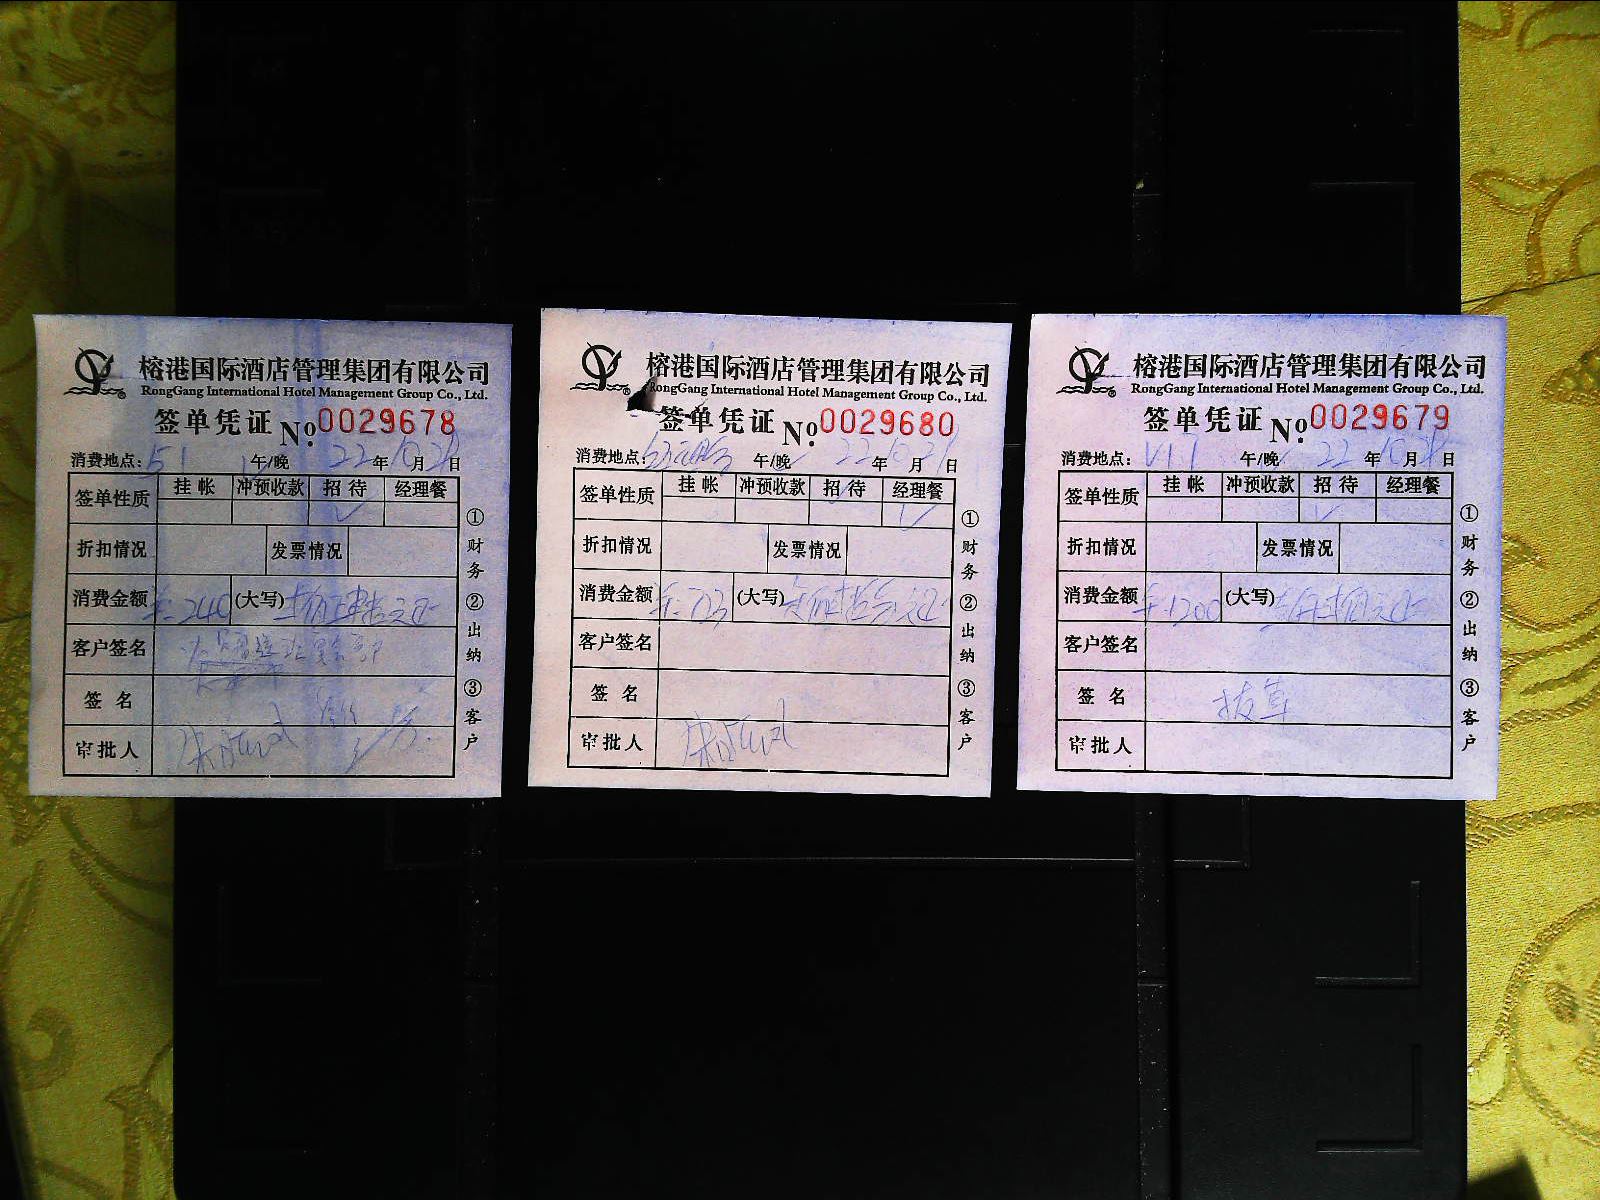 榕港国际酒店管理集团有限公司
RongGang International Hotel Management Group Co., Ltd.
签单凭证 No. 0029678
消费地点: 51 午/晚 22年10月 日
签单性质 挂帐 冲预收款 招待 经理餐
✓
折扣情况 发票情况
消费金额 240 (大写)
客户签名
签名
审批人
①财务 ②出纳 ③客户
榕港国际酒店管理集团有限公司
RongGang International Hotel Management Group Co., Ltd.
签单凭证 No. 0029680
消费地点: 午/晚 22年10月29日
签单性质 挂帐 冲预收款 招待 经理餐
✓
折扣情况 发票情况
消费金额 (大写)
客户签名
签名
审批人
①财务 ②出纳 ③客户
榕港国际酒店管理集团有限公司
RongGang International Hotel Management Group Co., Ltd.
签单凭证 No. 0029679
消费地点: 午/晚 22年10月 日
签单性质 挂帐 冲预收款 招待 经理餐
✓
折扣情况 发票情况
消费金额 1200 (大写)
客户签名
签名 拔草
审批人
①财务 ②出纳 ③客户